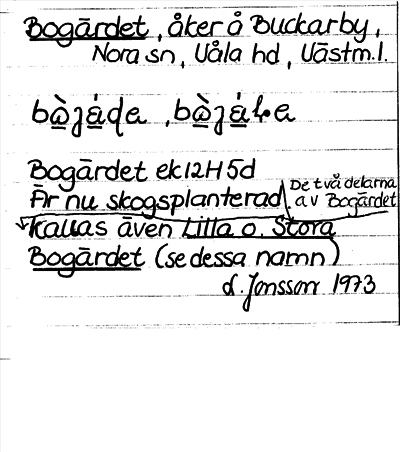 Bogärdet, åker å Buckarby,
Nora sn, Våla hd, Västm.l.
Bogärdet ek 12H5d
Är nu skogsplanterad. De två delarna av Bogärdet
kallas även Lilla o. Stora
Bogärdet (se dessa namn)
d. Jonsson 1973